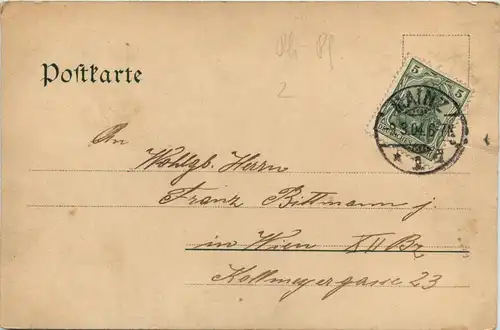 Postkarte
5 5
MAINZ
3.3.04.6-7N.
An
Wohlgb. Herrn
Franz Bittmann j.
in Wien XII Bz
Kollmeyergasse 23
2